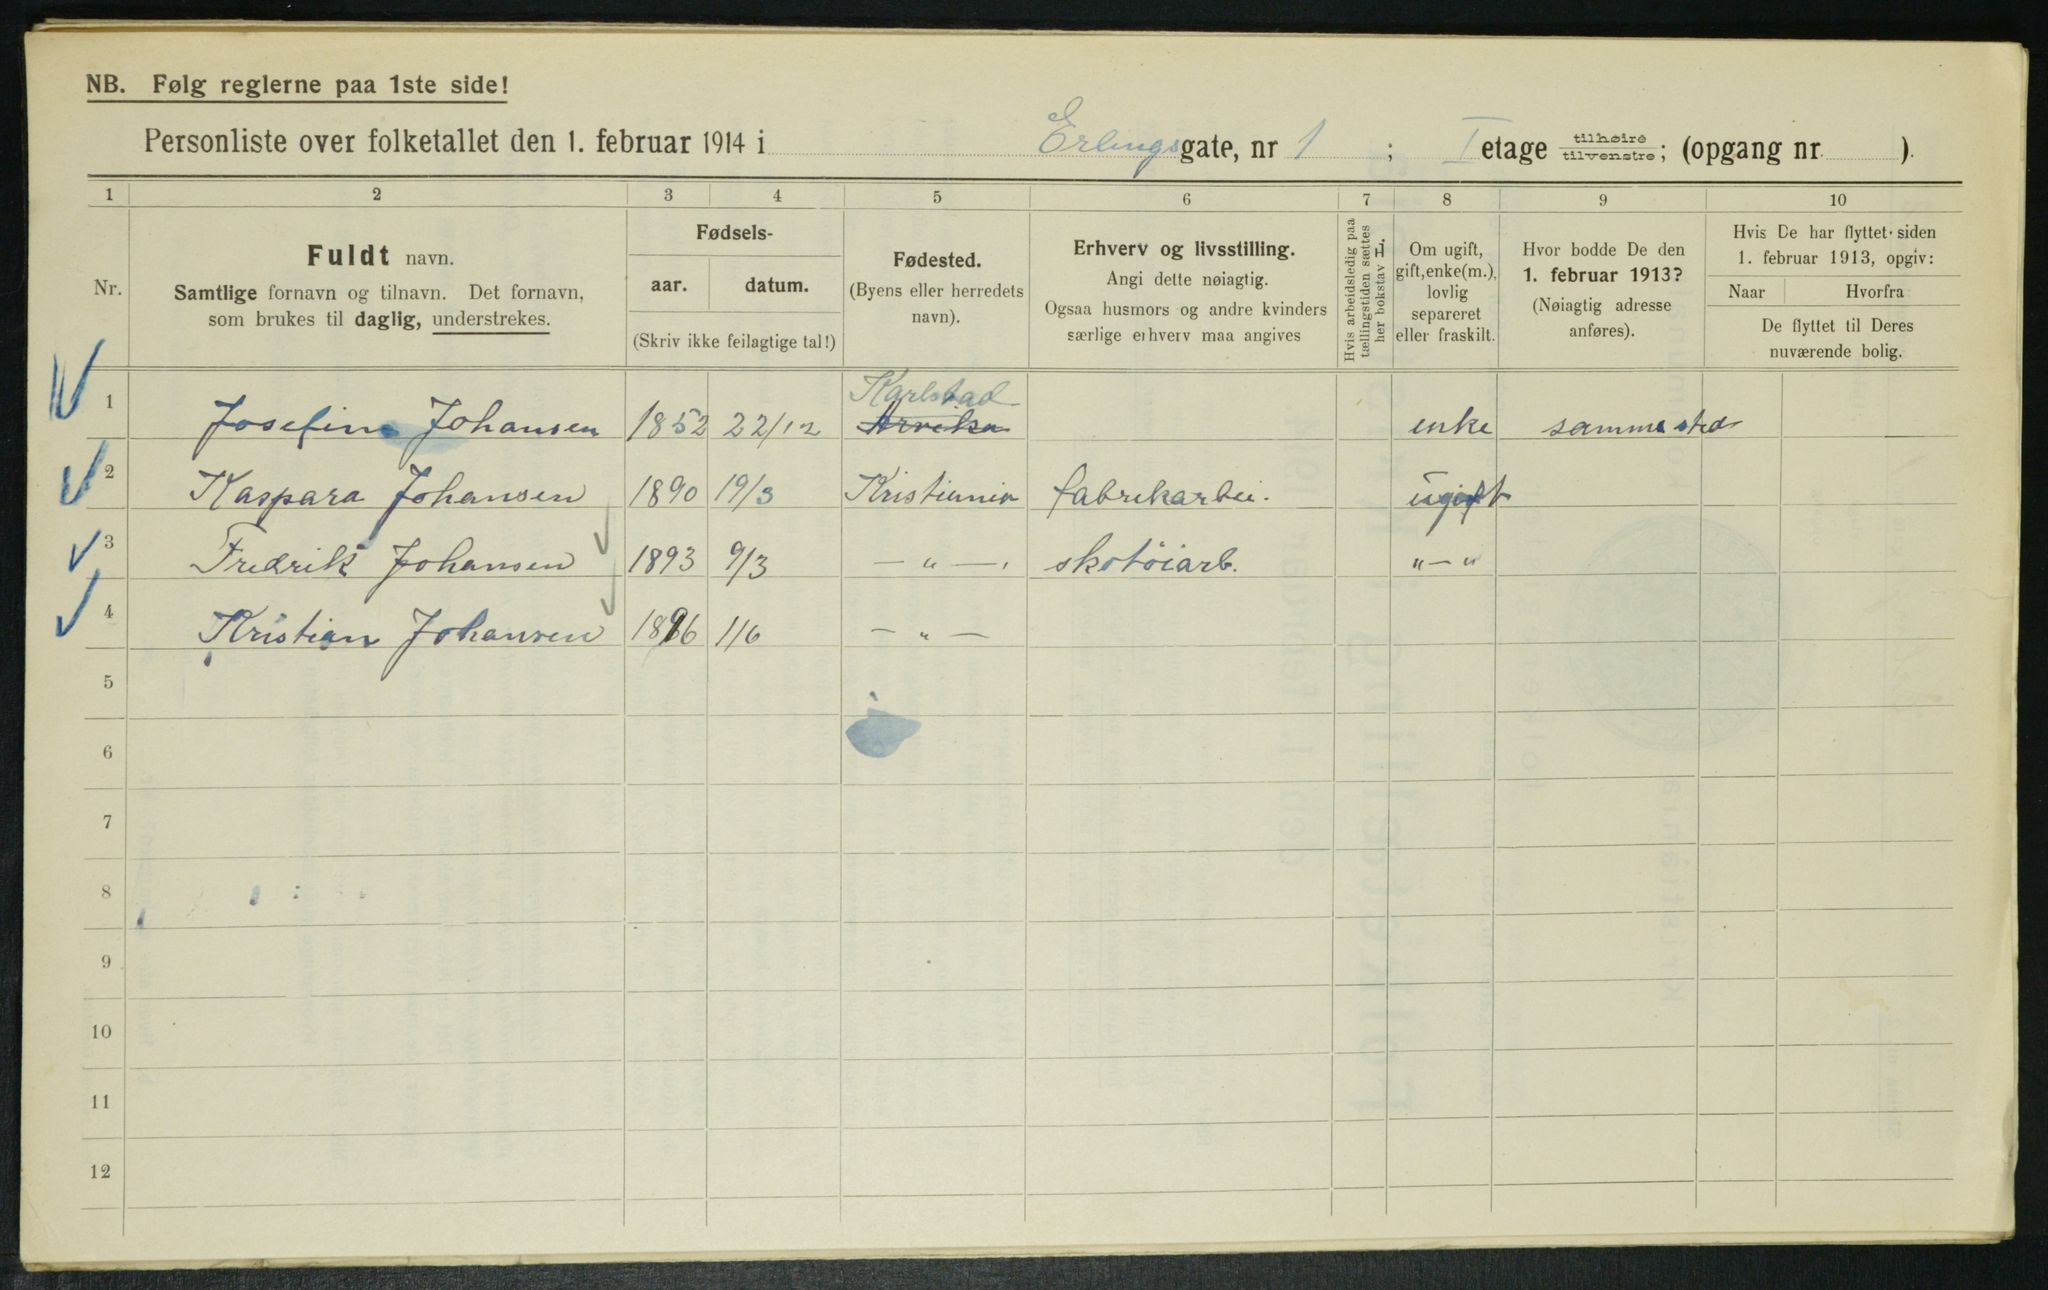 NB. Følg reglerne paa 1ste side!
Personliste over folketallet den 1. februar 1914 i Erlingsgate, nr 1 ; I etage tilhøire tilvenstre; (opgang nr. ).
1 2 3 4 5 6 7 8 9 10
Nr.
Fuldt navn.
Samtlige fornavn og tilnavn. Det fornavn,
som brukes til daglig, understrekes.
Fødsels-
aar. datum.
(Skriv ikke feilagtige tal!)
Fødested.
(Byens eller herredets
navn).
Erhverv og livsstilling.
Angi dette nøiagtig.
Ogsaa husmors og andre kvinders
særlige erhverv maa angives
Hvis arbeidsledig paa
tællingstiden sættes
her bokstav L.
Om ugift,
gift, enke(m.),
lovlig
separeret
eller fraskilt.
Hvor bodde De den
1. februar 1913?
(Nøiagtig adresse
anføres).
Hvis De har flyttet siden
1. februar 1913, opgiv:
Naar Hvorfra
De flyttet til Deres
nuværende bolig.
Karlstad
1 Josefine Johansen 1852 22/12 Arvika enke sammested
2 Kaspara Johansen 1890 19/3 Kristiania fabrikarbei. ugift
3 Fredrik Johansen 1893 9/3 — " — skotöiarb. " — "
4 Kristian Johansen 1896 1/6 — " —
5
6
7
8
9
10
11
12